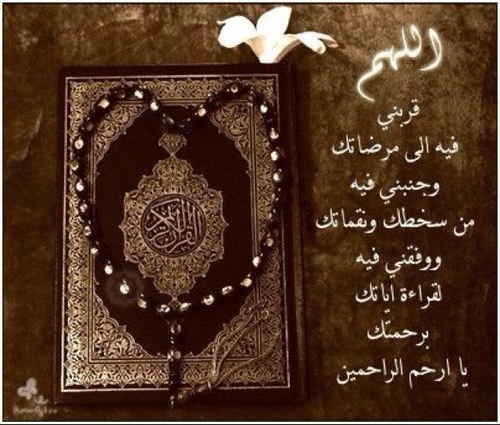 اللهم
قربني
فيه الى مرضاتك
وجنبني فيه
من سخطك ونقماتك
ووفقني فيه
لقراءة اياتك
برحمتك
يا ارحم الراحمين
القرآن الكريم